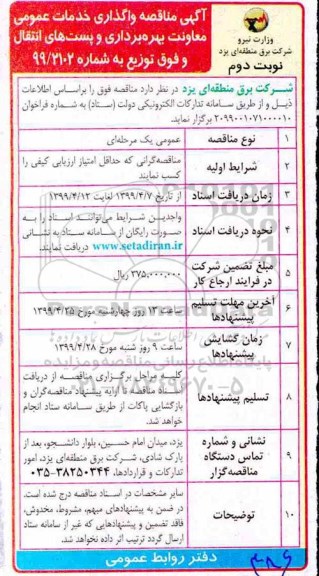 آگهی مناقصه واگذاری خدمات عمومی
معاونت بهره‌برداری و پست‌های انتقال
و فوق توزیع به شماره ۹۹/۲۱۰۲
وزارت نیرو
شرکت برق منطقه‌ای یزد
نوبت دوم
شرکت برق منطقه‌ای یزد در نظر دارد مناقصه فوق را براساس اطلاعات
ذیل و از طریق سامانه تدارکات الکترونیکی دولت (ستاد) به شماره فراخوان
۲۰۹۹۰۰۱۰۷۱۰۰۰۰۱۰ برگزار نماید.
۱ نوع مناقصه عمومی یک مرحله‌ای
۲ شرایط اولیه مناقصه‌گرانی که حداقل امتیاز ارزیابی کیفی را
کسب نمایند
۳ زمان دریافت اسناد از تاریخ ۱۳۹۹/۴/۷ لغایت ۱۳۹۹/۴/۱۲
۴ نحوه دریافت اسناد واجدین شرایط می‌توانند اسناد را به
صورت رایگان از سامانه ستاد به نشانی
www.setadiran.ir دریافت نمایند.
۵ مبلغ تضمین شرکت
در فرایند ارجاع کار ۳۷۵,۰۰۰,۰۰۰ ریال
۶ آخرین مهلت تسلیم
پیشنهادها ساعت ۱۳ روز چهارشنبه مورخ ۱۳۹۹/۴/۲۵
۷ زمان گشایش
پیشنهادها ساعت ۹ روز شنبه مورخ ۱۳۹۹/۴/۲۸
۸ تسلیم پیشنهادها کلیه مراحل برگزاری مناقصه از دریافت
اسناد مناقصه تا ارایه پیشنهاد مناقصه‌گران و
بازگشایی پاکات از طریق سامانه ستاد انجام
خواهد شد.
۹ نشانی و شماره
تماس دستگاه
مناقصه‌گزار یزد، میدان امام حسین، بلوار دانشجو، بعد از
پارک شادی، شرکت برق منطقه‌ای یزد، امور
تدارکات و قراردادها، ۳۸۲۵۰۳۴۴-۰۳۵
۱۰ توضیحات سایر مشخصات در اسناد مناقصه درج شده است.
در ضمن به پیشنهادهای مبهم، مشروط، مخدوش،
فاقد تضمین و پیشنهادهایی که غیر از سامانه ستاد
ارسال گردد ترتیب اثر داده نخواهد شد.
دفتر روابط عمومی